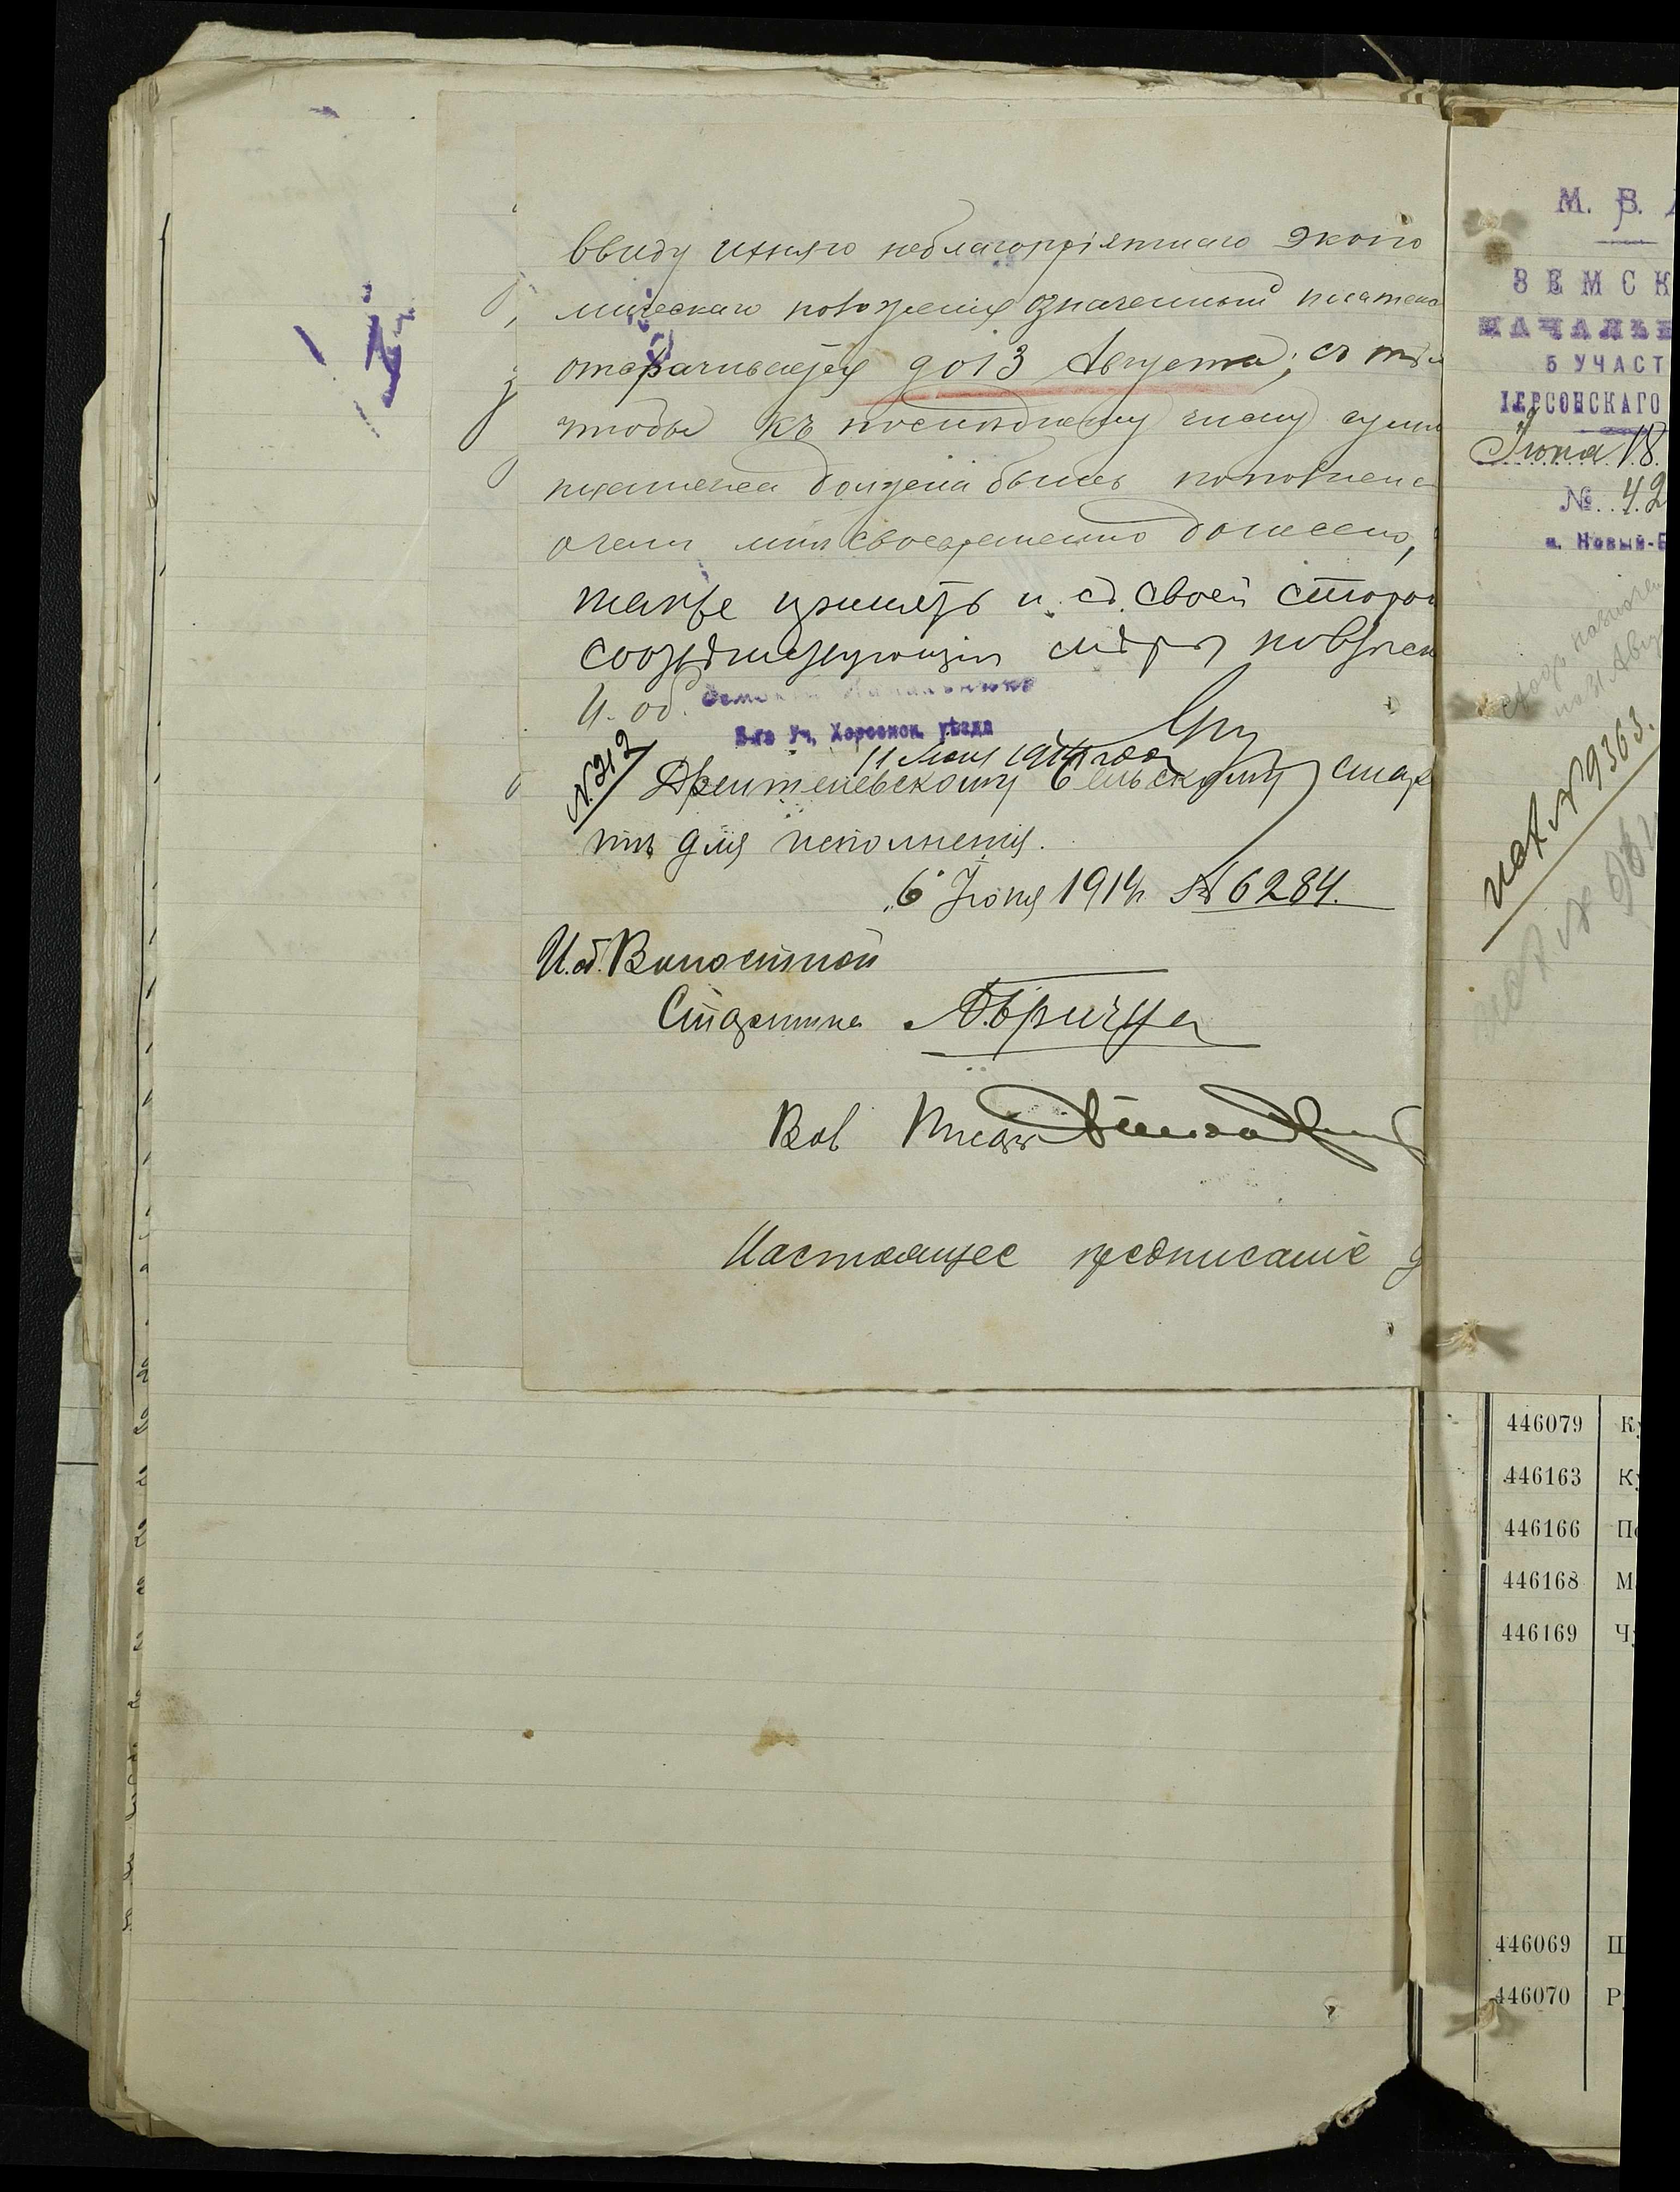 ввиду ихняго неблагопріятнаго эконо
мическаго положенія означенный платежъ
отсрачивается до 13 Августа; съ тѣм
чтобы къ послѣднему числу сумма
платежа должна быть пополнена
о чемъ мнѣ своевременно донесено,
также принять и съ своей сторон
соотвѣтствующія мѣры
И. об. Земскаго Начальника
5-го Уч. Херсонск. уѣзда
11 1914 года
№ 312
Сельскому стар
тѣ для исполненія.
6 Іюня 1914 г. № 6284.
И. об. Волостной
Старшина
Вол Писарь
Настоящее предписаніе
М. В.
ЗЕМСК
НАЧАЛЬН
5 УЧАСТ
ХЕРСОНСКАГО
Іюня 18.
№ 42
м. Новый-Б
исх № 9363.
446079 Ку
446163 Ку
446166 По
446168 М
446169 Чу
446069 Ш
446070 Р